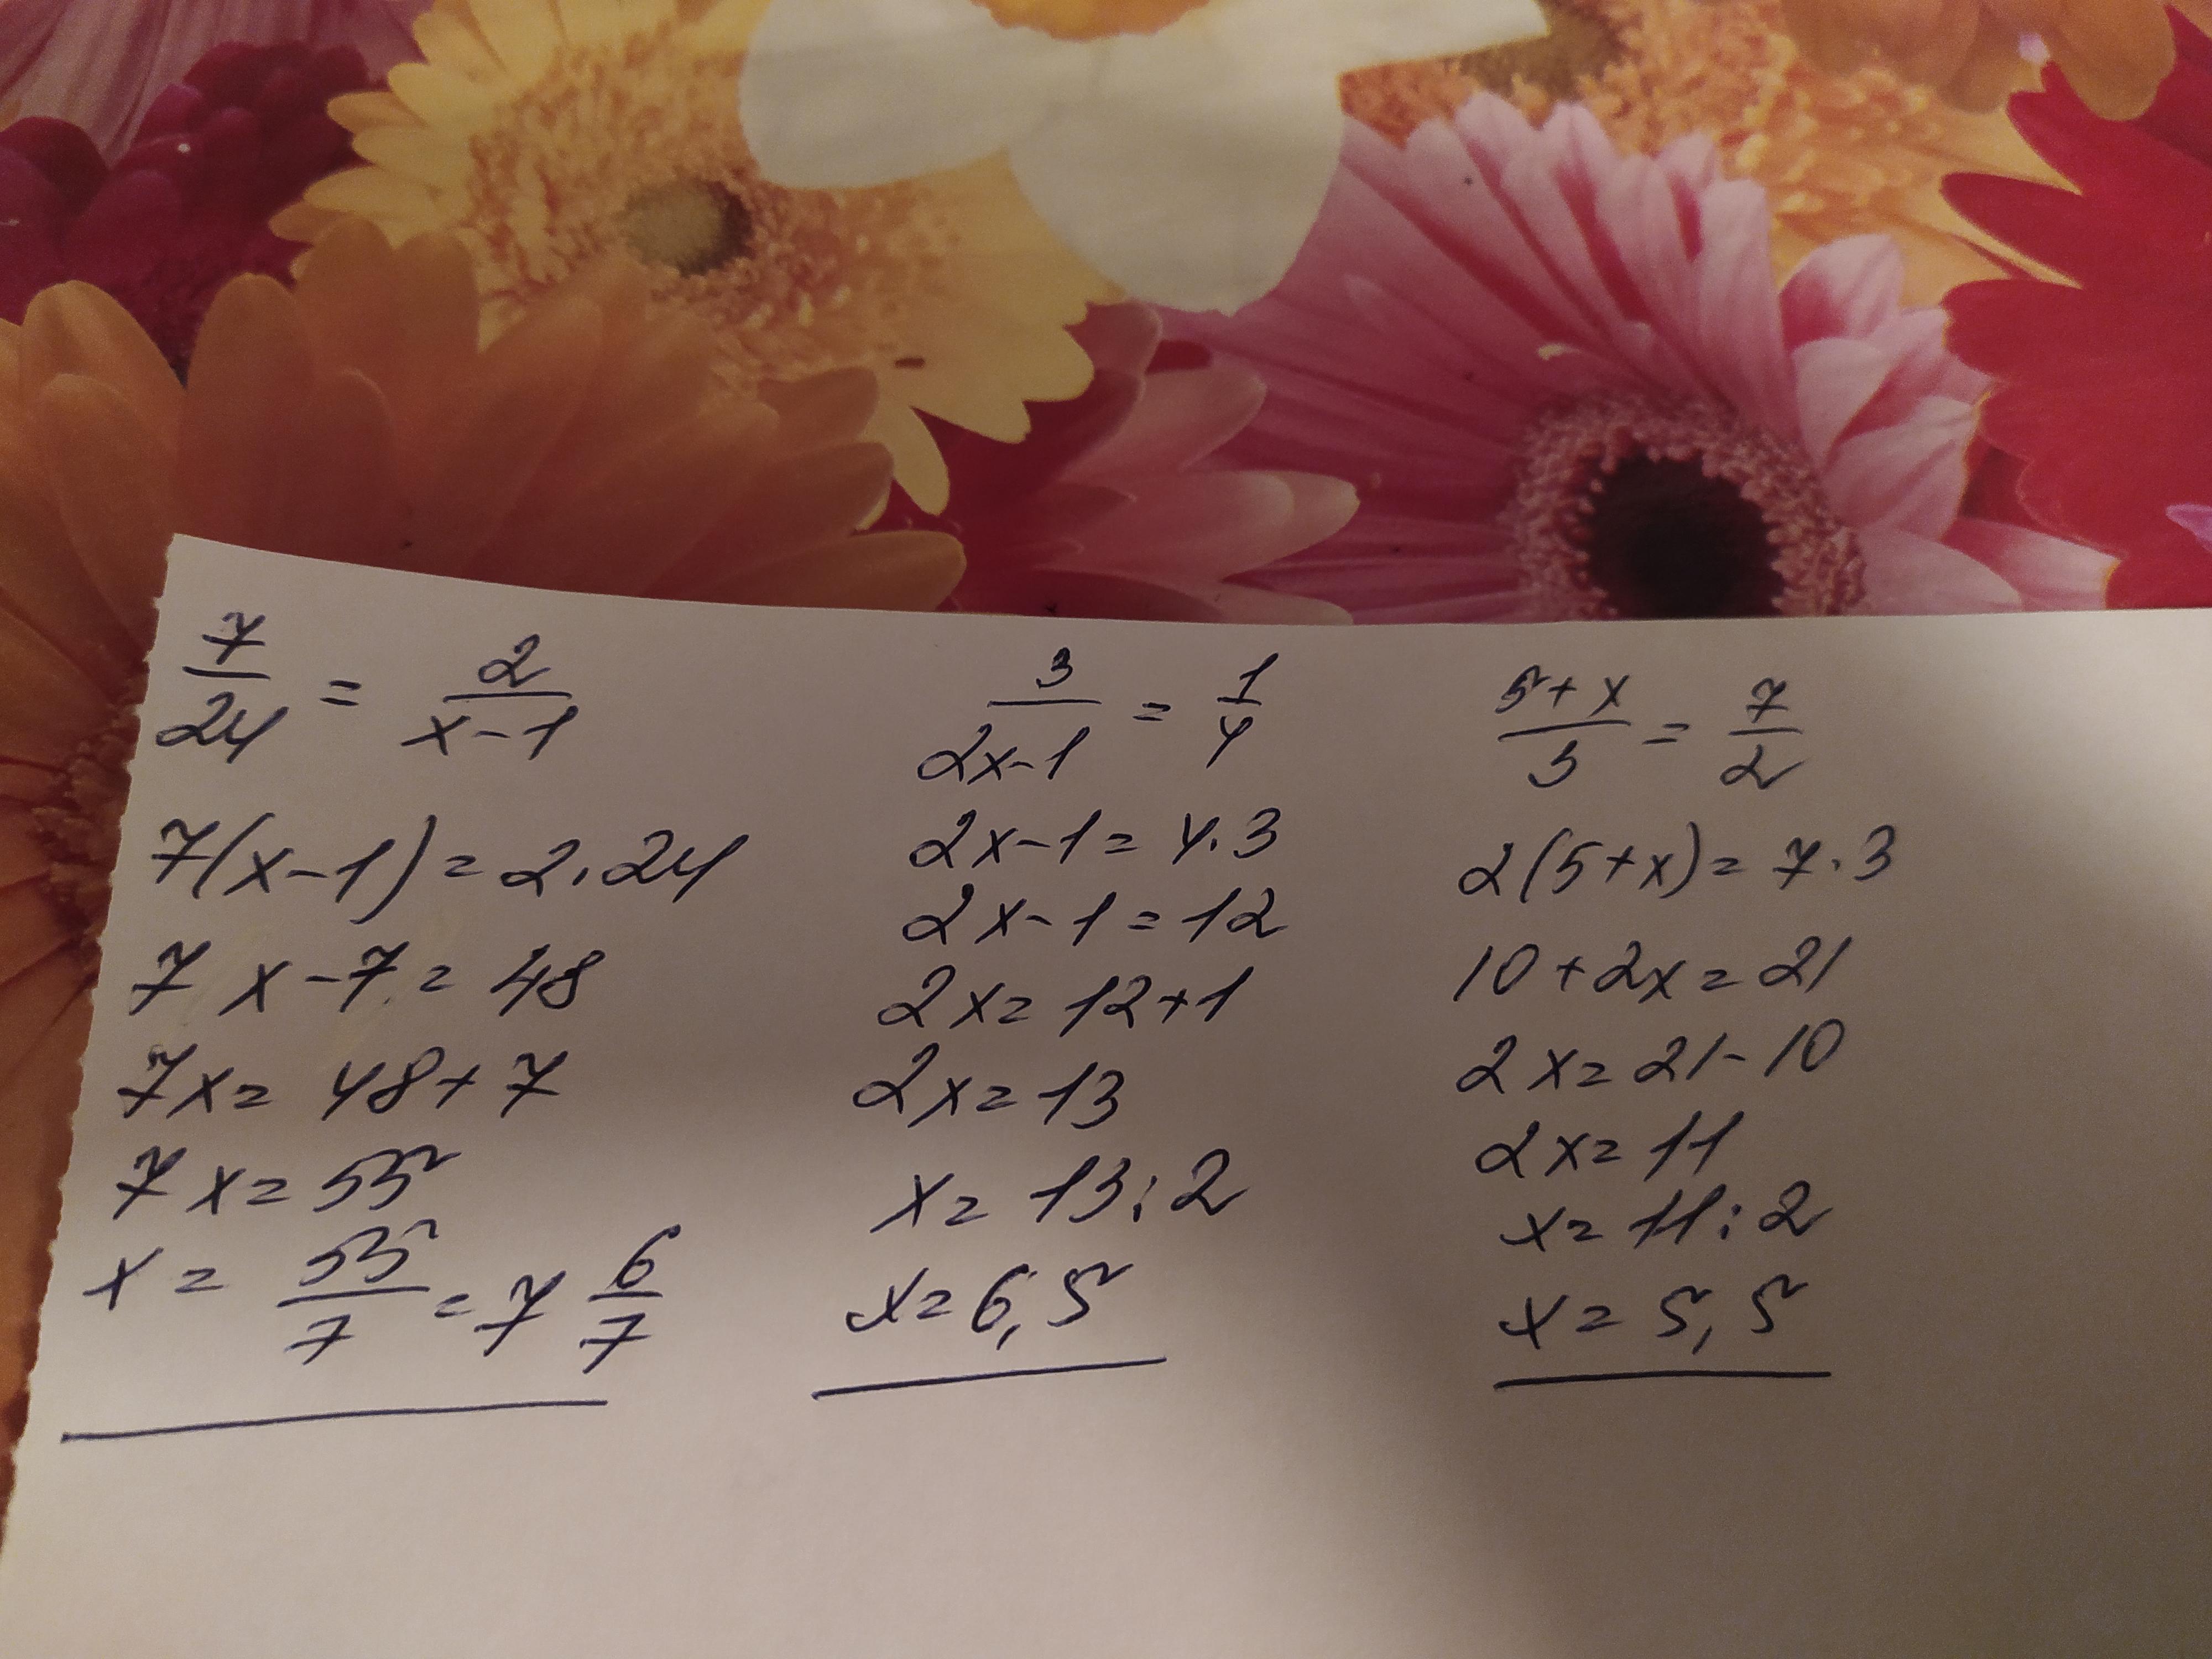 7/24 = 2/(x-1)
7(x-1)=2·24
7x-7=48
7x=48+7
7x=55
x=55/7=7 6/7
3/(2x-1)=1/4
2x-1=4·3
2x-1=12
2x=12+1
2x=13
x=13:2
x=6,5
(5+x)/3=7/2
2(5+x)=7·3
10+2x=21
2x=21-10
2x=11
x=11:2
x=5,5